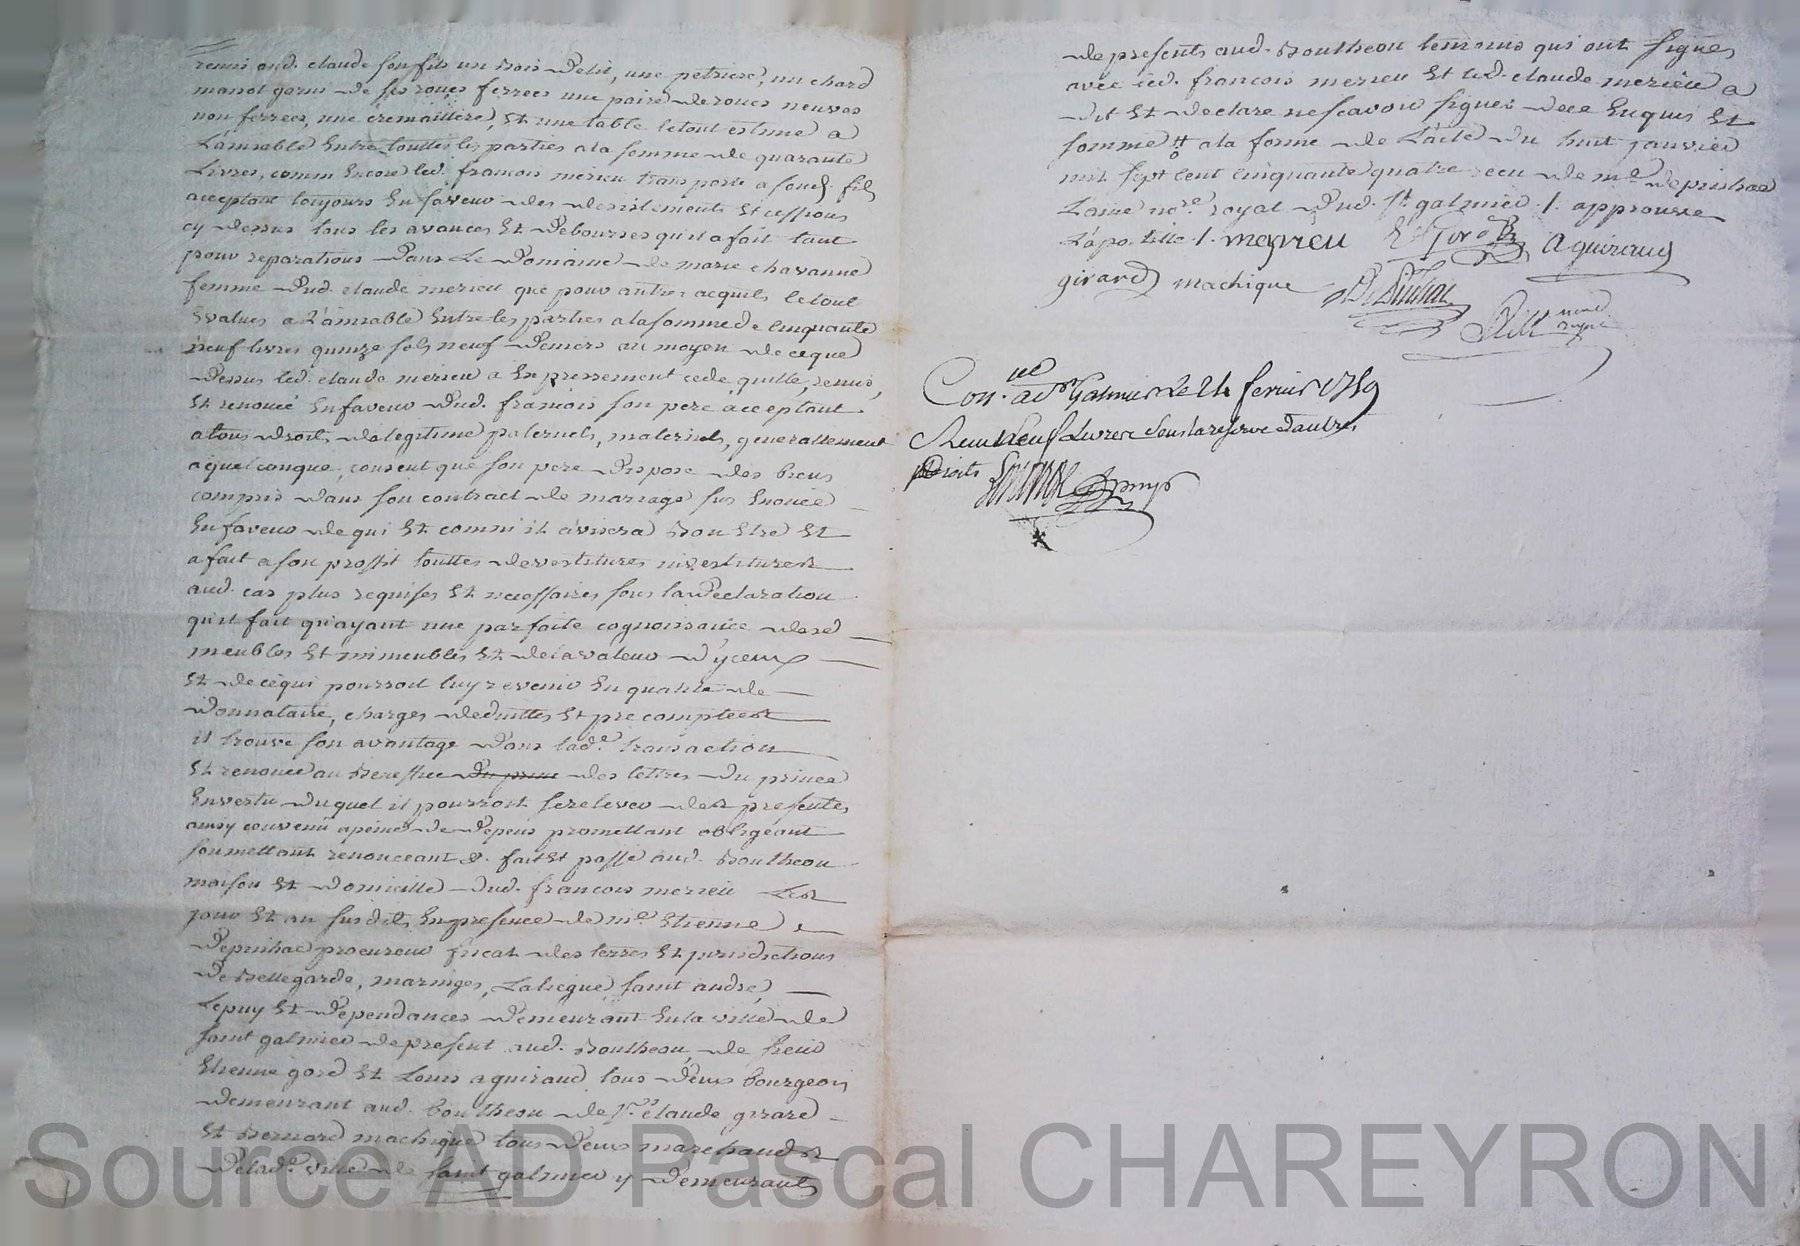 remis aud. claude son fils un bois de lit, une petriere, un chard
manot garni de ses roues ferrees une paire de roues neuves
non ferrees, une cremaillere, et une table le tout estimé a
L'amiable Entre touttes les parties a la somme de quarante
Livres, comm Encore led. francois merieu transporte a sond. fils
acceptant toujours En faveur des desistements et cessions
cy dessus tous les avances Et Debourses qu'il a fait tant
pour reparations Dans Le Domaine de marie chavanne
femme dud. claude merieu que pour autres acquits le tout
Evalues a L'amiable Entre les parties a la somme de cinquante
neuf livres quinze sols neuf deniers au moyen de ce que
Dessus led. claude merieu a Expressement cede, quitte, remis,
Et renoncé En faveur dud. francois son pere acceptant
a tous droits de legitime paternels, maternels, generallement
quelconque, consent que son pere dispose des biens
compris dans son contract de mariage sus Enoncé
En faveur de qui Et comm' il avisera bon Estre Et
a fait a son proffit touttes devestitures investitures
aud. cas plus requises Et necessaires sous la declaration
qu'il fait qu'ayant une parfaite cognoissance desd
meubles Et immeubles Et de la valeur d'yceux
Et de ce qui pourroit luy revenir En qualité de
Donnataire, charges deduittes Et precomptees
il trouve son avantage dans lad.e transaction
Et renonce au Beneffice du prince des lettres du prince
En vertu duquel il pourroit se relever des presentes
ainsy convenû a peine de depens promettant obligeant
soumettant renonceant &. fait Et passé aud. Boutheon
maison Et domicille dud. francois merieu Les
jour Et an susdits, En presence de m.e Etienne
Depinhac procureur fiscal des terres Et jurisdictions
De Bellegarde, maringes, La liegue, saint andré,
Lepuy Et Dependances Demeurant En la ville de
saint galmier de present aud. Boutheon, de sieur
Etienne gord Et Louis aguiraud tous deux bourgeois
demeurant aud. boutheon de s.rs claude girard
Et Bernard machique tous deux marchands
De lad.e ville de saint galmier y demeurants
de presents aud. Boutheon temoins qui ont signés
avec led. francois merieu Et led. claude merieu a
dit Et declare ne scavoir signer de ce Enquis Et
sommé # a la forme de L'acte du huit janvier
mil sept cent cinquante quatre recu de m.e depinhac
L'ainé no.re royal dud. st galmier ./. approuvé
L'apostille ./. meyrieu E. Gord aguiraud
girard machique Depinhac
no.re royal
Con.lé a st Galmier le 24 fevrier 1759
Recu Neuf Livres sous la reserve d'autres
Droits